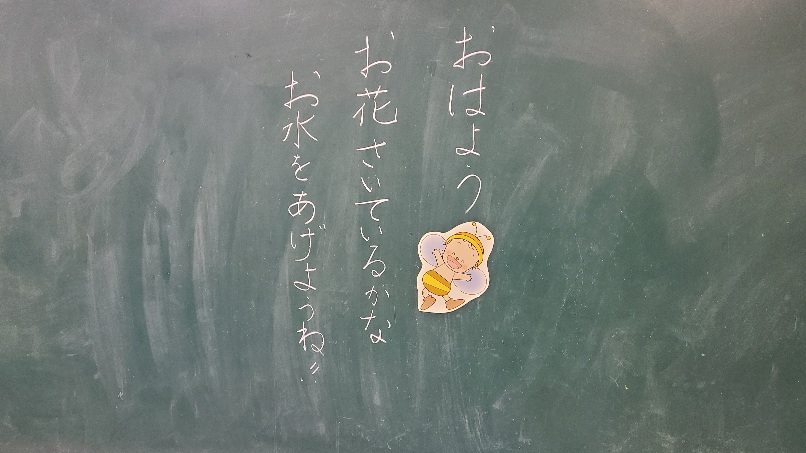 おはよう
お花さいているかな
お水をあげようね!!